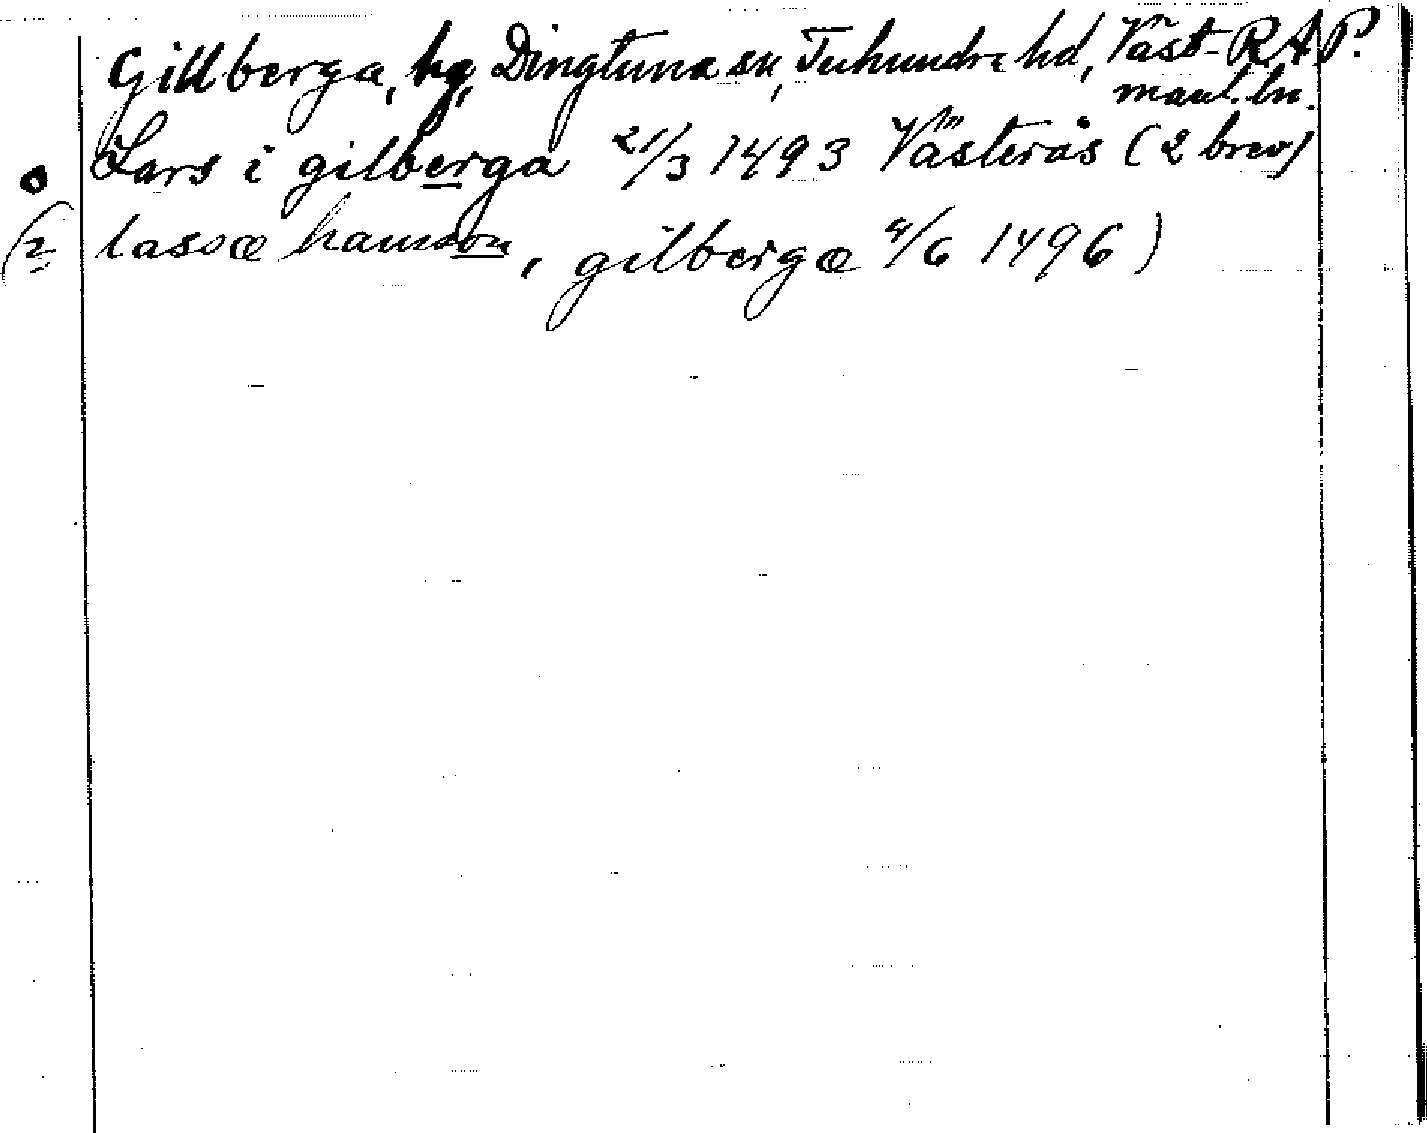 Gillberga, hg, Dingtuna sn, Tuhundra hd, Väst- RAP.
manl. ln.
Lars i gilberga 21/3 1493 Västerås (2 brev)
(2 lassæ hanson, gilbergæ 4/6 1496)